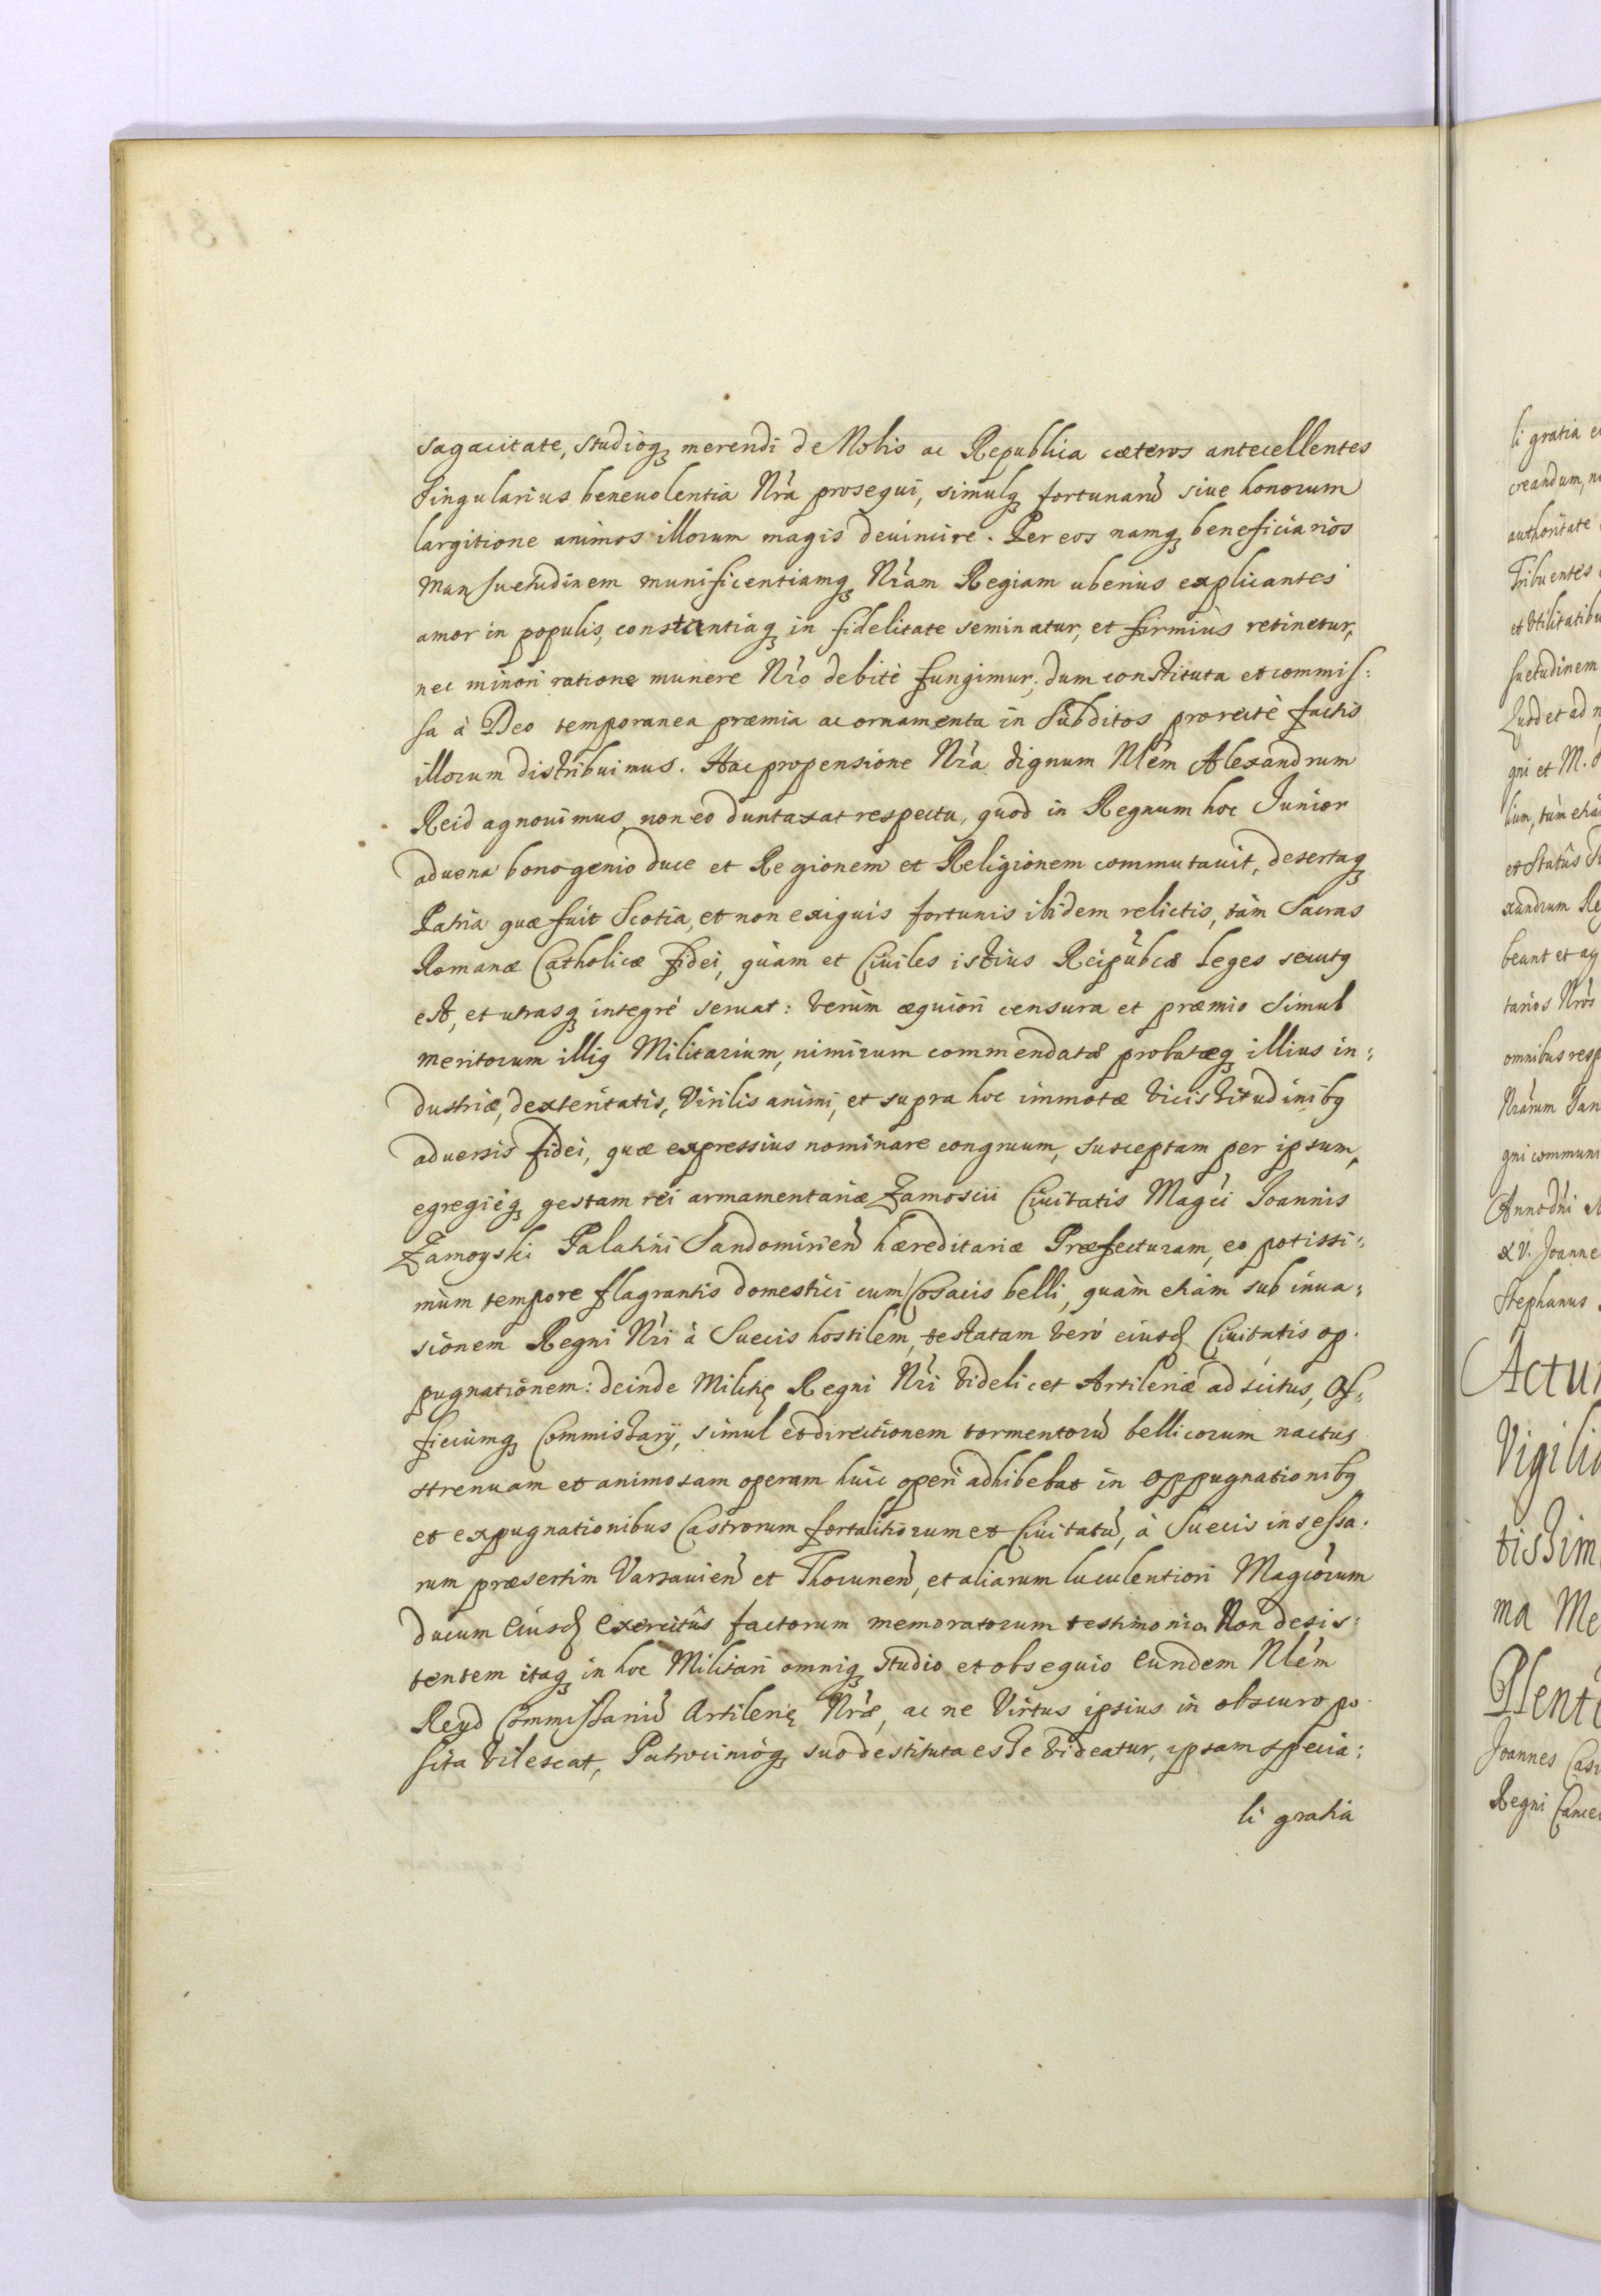 sagacitate, studioq3 merendi de Nobis ac Republica cæteros antecellentes
Singularius beneuolentia Nrà prosequi, simulq3 fortunarũ siue honorum
largitione animos illorum magis deuincire. Per eos namq3 beneficiarios
mansuetudinem munificentiamq3 Nràm Regiam uberius explicantes
amor in populis, constantiaq3 in fidelitate seminatur, et firmiùs retinetur,
nec minori ratione munere Nrò debitè fungimur, dum constituta et commis:
sa à Deo temporanea præmia ac ornamenta in Subditos pro rectè factis
illorum distribuimus. Hac propensione Nrà dignum Nlèm Alexandrum
Reid agnouimus, non eo duntaxat respectu, quod in Regnum hoc Junior
aduena bono genio duce et Regionem et Religionem commutauit, desertaq3
Patria quæ fuit Scotia, et non exiguis fortunis ibidem relictis, tàm Sacras
Romanæ Catholicæ fidei, quàm et Ciuiles istius Reipùbcæ leges secutq
est, et utrasq3 integrè seruat: verùm æquiori censura et præmio Simul
meritorum illiq Militarium, nimirum commendatæ probatæq3 illius in:
dustriæ, dexteritatis, Virilis animi, et supra hoc immotæ vicissitudinibq
aduersis fidei, quæ expressius nominare congruum, susceptam per ipsum,
egregièq3 gestam rei armamentariæ Zamoscii Ciuitatis Magcì Joannis
Zamoyski Palatini Sandomirień hæreditariæ Præfecturam, eo potissi:
mùm tempore flagrantis domestici cum Cosacis belli, quàm etiàm sub inua:
sionem Regni Nrì à Suecis hostilem, testatam verò eiusd Ciuitatis op:
pugnationem: deinde Militię Regni Nrì videlicet Artileriæ adscitus, Of:
ficiumq3 Commissarij, simul et directionem tormentorũ bellicorum nactus
strenuam et animosam operam huic operi adhibebat in oppugnationibq
et expugnationibus Castrorum fortalitiorum et Ciuitatũ, à Suecis insessa:
rum præsertim Varsauień et Thoruneń, et aliarum luculentiori Magcòrum
ducum eiusd exercitûs factorum memoratorum testimonio. Non desis:
tentem itaq3 in hoc Militari omniq3 studio et obsequio eundem Nlèm
Reyd Commissariũ Artilerię Nræ, ac ne Virtus ipsius in obscuro po:
sita vilescat, Patrocinioq3 suo destituta esse videatur, ipsam specia:
li gratia
li gratia
creandum,
authoritate
Tribuentes
et Vtilitatibu
suetudinem
Quod et ad
gni et M.
lium, tùm
et Statûs
xandrum Re
beant et ag
tarios Nròs
omnibus resp
Nràrum San
gni communi
Anno dni
XV. Joanne
Stephanus
Actu
Vigilia
tissim
ma Me
Plent
Joannes Casi
Regni Cance